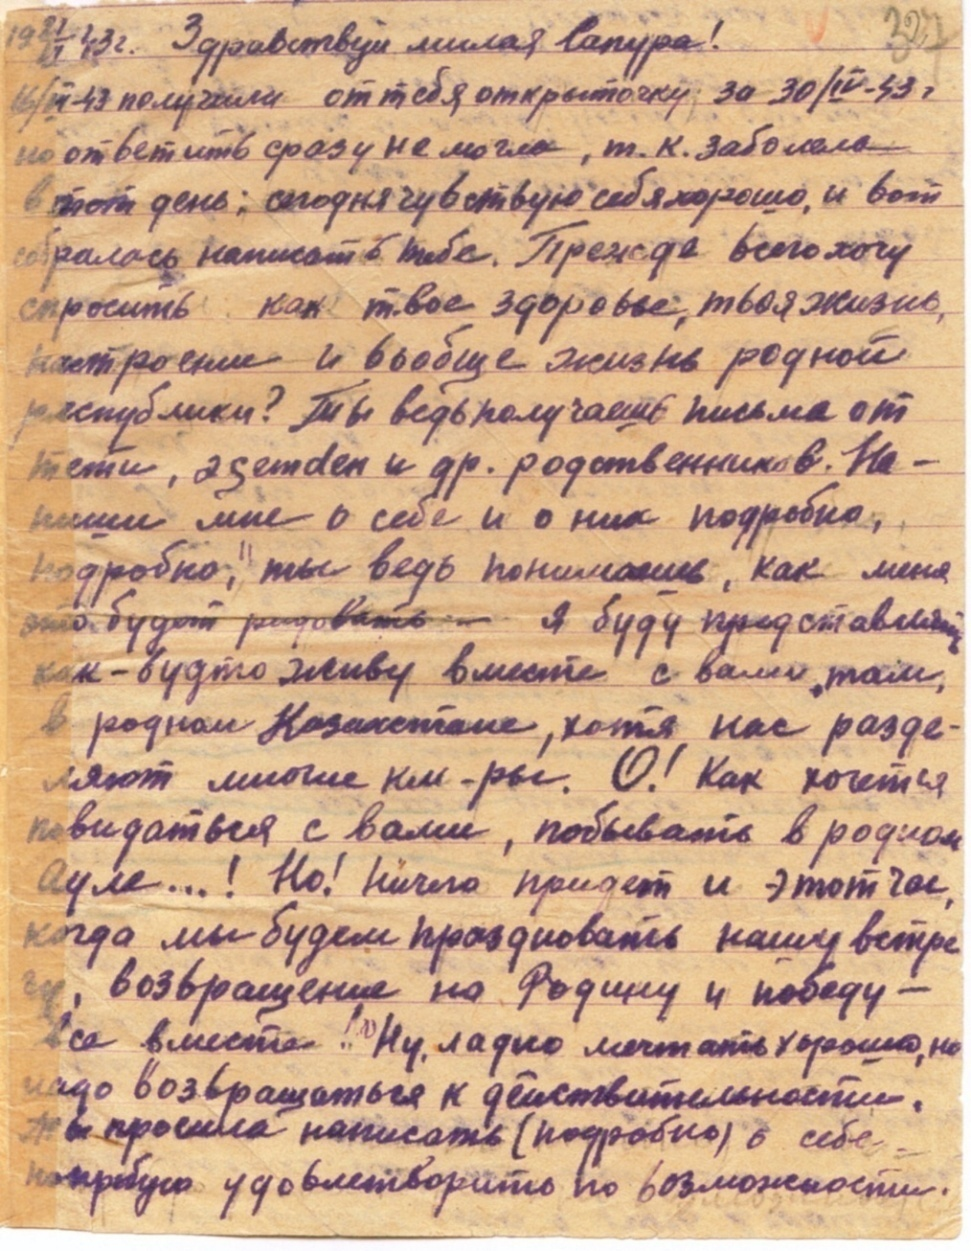 19 21/VI 43 г. Здравствуй милая Сапура! 327
16/VI-43 получили от тебя открыточку за 30/IV-43 г
но ответить сразу не могла, т.к. заболела
в тот день; сегодня чувствую себя хорошо, и вот
собралась написать тебе. Прежде всего хочу
спросить как твое здоровье, твоя жизнь,
настроение и вообще жизнь родной
республики? Ты ведь получаешь письма от
тети, əgemden и др. родственников. На-
пиши мне о себе и о них подробно,
подробно, ты ведь понимаешь, как меня
это будет радовать — я буду представлять
как-будто живу вместе с вами, там,
в родном Казахстане, хотя нас разде-
ляют многие км-ры. О! Как хочется
повидаться с вами, побывать в родном
Ауле...! Но! Ничего придет и этот час,
когда мы будем праздновать нашу встре
чу, возвращение на Родину и победу —
все вместе!! Ну, ладно мечтать хорошо, но
надо возвращаться к действительности.
Ты просила написать (подробно) о себе —
попробую удовлетворить по возможности.